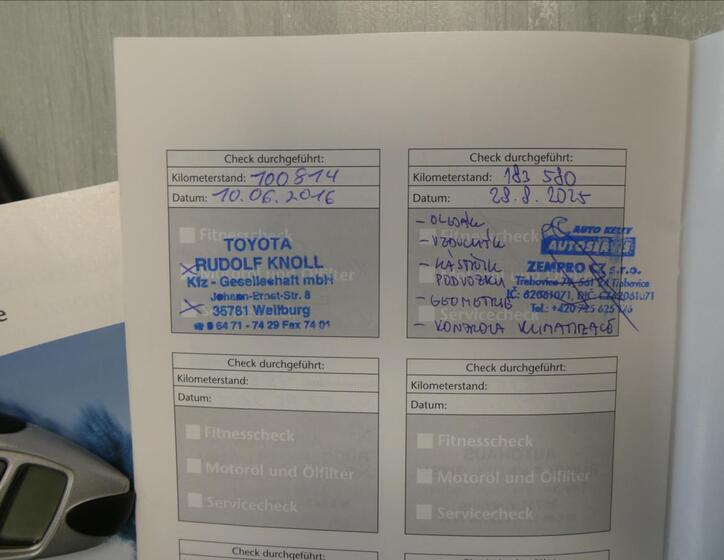 Check durchgeführt:
Kilometerstand: 100814
Datum: 10.06.2016
Fitnesscheck
TOYOTA
RUDOLF KNOLL
Kfz - Gesellschaft mbH
Johann-Ernst-Str. 8
35781 Weilburg
☎ 0 64 71 - 74 29 Fax 74 01
Check durchgeführt:
Kilometerstand: 183 580
Datum: 28.8.2025
- OLEJ
- VZDUCH
-
PODVOZKU
- GEOMETRIE
- KONTROLA KLIMATIZACE
AUTO KELLY
AUTOSERVIS
ZEMPRO CZ s.r.o.
Třebovice 79, 561 24 Třebovice
Tel.: +420 725 625
Servicecheck
Check durchgeführt:
Kilometerstand:
Datum:
Fitnesscheck
Motoröl und Ölfilter
Servicecheck
Check durchgeführt:
Kilometerstand:
Datum:
Fitnesscheck
Motoröl und Ölfilter
Servicecheck
Check durchgeführt:
Check durchgeführt:
e